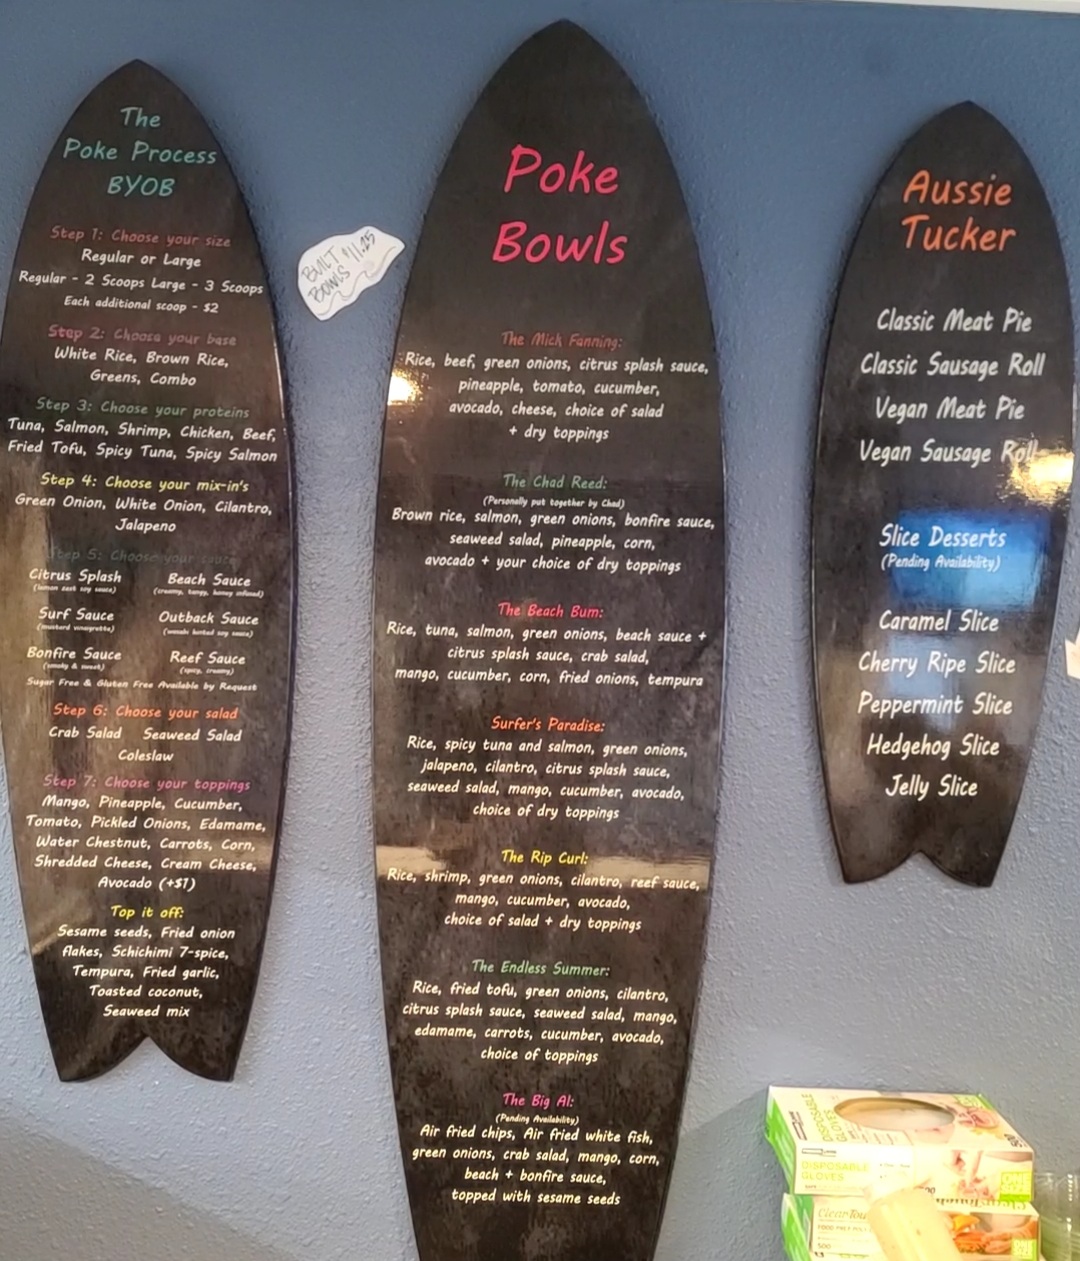 The
Poke Process
BYOB
Step 1: Choose your size
Regular or Large
Regular - 2 Scoops Large - 3 Scoops
Each additional scoop - $2
Step 2: Choose your base
White Rice, Brown Rice,
Greens, Combo
Step 3: Choose your proteins
Tuna, Salmon, Shrimp, Chicken, Beef,
Fried Tofu, Spicy Tuna, Spicy Salmon
Step 4: Choose your mix-in's
Green Onion, White Onion, Cilantro,
Jalapeno
Step 5: Choose your sauce
Citrus Splash
(lemon zest soy sauce)
Beach Sauce
(creamy, tangy, honey infused)
Surf Sauce
(mustard vinaigrette)
Outback Sauce
(wasabi soy sauce)
Bonfire Sauce
(smoky & sweet)
Reef Sauce
(spicy, creamy)
Sugar Free & Gluten Free Available by Request
Step 6: Choose your salad
Crab Salad Seaweed Salad
Coleslaw
Step 7: Choose your toppings
Mango, Pineapple, Cucumber,
Tomato, Pickled Onions, Edamame,
Water Chestnut, Carrots, Corn,
Shredded Cheese, Cream Cheese,
Avocado (+$1)
Top it off:
Sesame seeds, Fried onion
flakes, Schichimi 7-spice,
Tempura, Fried garlic,
Toasted coconut,
Seaweed mix
BUILT $11.25
BOWLS
Poke
Bowls
The Mick Fanning:
Rice, beef, green onions, citrus splash sauce,
pineapple, tomato, cucumber,
avocado, cheese, choice of salad
+ dry toppings
The Chad Reed:
(Personally put together by Chad)
Brown rice, salmon, green onions, bonfire sauce,
seaweed salad, pineapple, corn,
avocado + your choice of dry toppings
The Beach Bum:
Rice, tuna, salmon, green onions, beach sauce +
citrus splash sauce, crab salad,
mango, cucumber, corn, fried onions, tempura
Surfer's Paradise:
Rice, spicy tuna and salmon, green onions,
jalapeno, cilantro, citrus splash sauce,
seaweed salad, mango, cucumber, avocado,
choice of dry toppings
The Rip Curl:
Rice, shrimp, green onions, cilantro, reef sauce,
mango, cucumber, avocado,
choice of salad + dry toppings
The Endless Summer:
Rice, fried tofu, green onions, cilantro,
citrus splash sauce, seaweed salad, mango,
edamame, carrots, cucumber, avocado,
choice of toppings
The Big Al:
(Pending Availability)
Air fried chips, Air fried white fish,
green onions, crab salad, mango, corn,
beach + bonfire sauce,
topped with sesame seeds
Aussie
Tucker
Classic Meat Pie
Classic Sausage Roll
Vegan Meat Pie
Vegan Sausage Roll
Slice Desserts
(Pending Availability)
Caramel Slice
Cherry Ripe Slice
Peppermint Slice
Hedgehog Slice
Jelly Slice
DISPOSABLE
GLOVES
DISPOSABLE
GLOVES
500